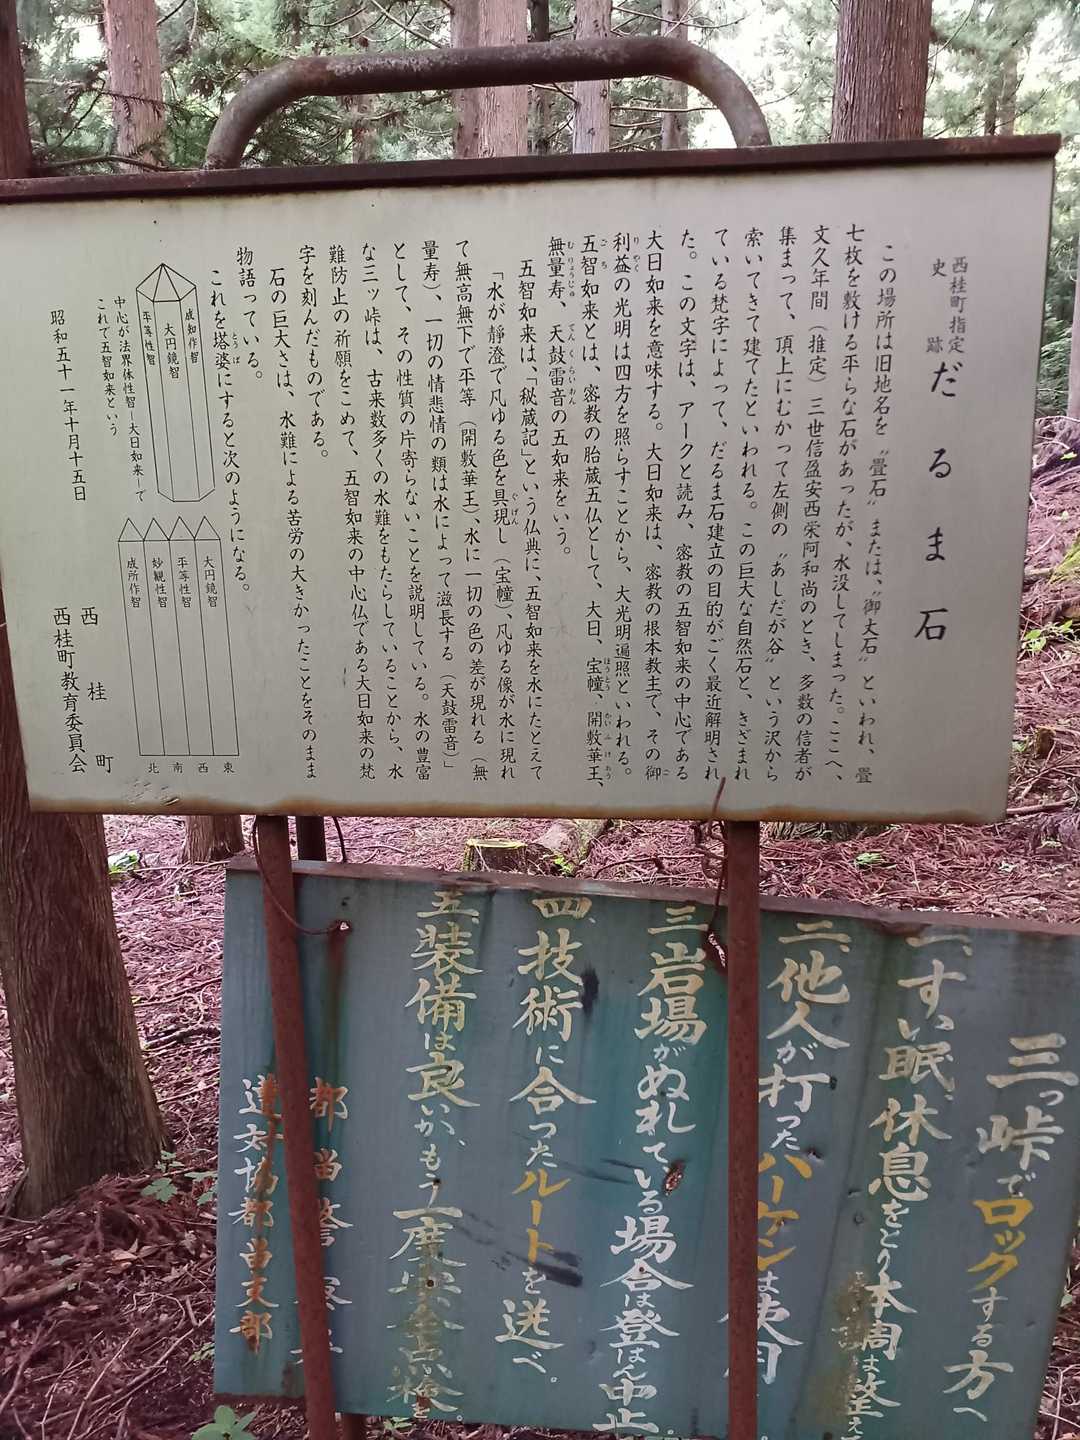 西桂町指定
史跡
だるま石
この場所は旧地名を〝畳石〟または、〝御大石〟といわれ、畳
七枚を敷ける平らな石があったが、水没してしまった。ここへ、
文久年間（推定）三世信盈安西栄阿和尚のとき、多数の信者が
集まって、頂上にむかって左側の〝あしだが谷〟という沢から
索いてきて建てたといわれる。この巨大な自然石と、きざまれ
ている梵字によって、だるま石建立の目的がごく最近解明され
た。この文字は、アークと読み、密教の五智如来の中心である
大日如来を意味する。大日如来は、密教の根本教主で、その御
利益の光明は四方を照らすことから、大光明遍照といわれる。
五智如来とは、密教の胎蔵五仏として、大日、宝幢、開敷華王、
無量寿、天鼓雷音の五如来をいう。
五智如来は、「秘蔵記」という仏典に、五智如来を水にたとえて
「水が靜澄で凡ゆる色を具現し（宝幢）、凡ゆる像が水に現れ
て無高無下で平等（開敷華王）、水に一切の色の差が現れる（無
量寿）、一切の情悲情の類は水によって滋長する（天鼓雷音）」
として、その性質の片寄らないことを説明している。水の豊富
な三ッ峠は、古来数多くの水難をもたらしていることから、水
難防止の祈願をこめて、五智如来の中心仏である大日如来の梵
字を刻んだものである。
石の巨大さは、水難による苦労の大きかったことをそのまま
物語っている。
これを塔婆にすると次のようになる。
成知作智
大円鏡智
平等性智
中心が法界体性智―大日如来―で
これで五智如来という
大円鏡智
平等性智
妙観性智
成所作智
東
西
南
北
昭和五十一年十月十五日
西桂町
西桂町教育委員会
三っ峠でロックする方へ
一、すい眠、休息をとり体調を整えて
二、他人が打ったハーケンは使用
三、岩場がぬれている場合は登はん中止。
四、技術に合ったルートを送べ。
五、装備は良いか、もう一度安全点検を。
都留警察
遭対協都留支部